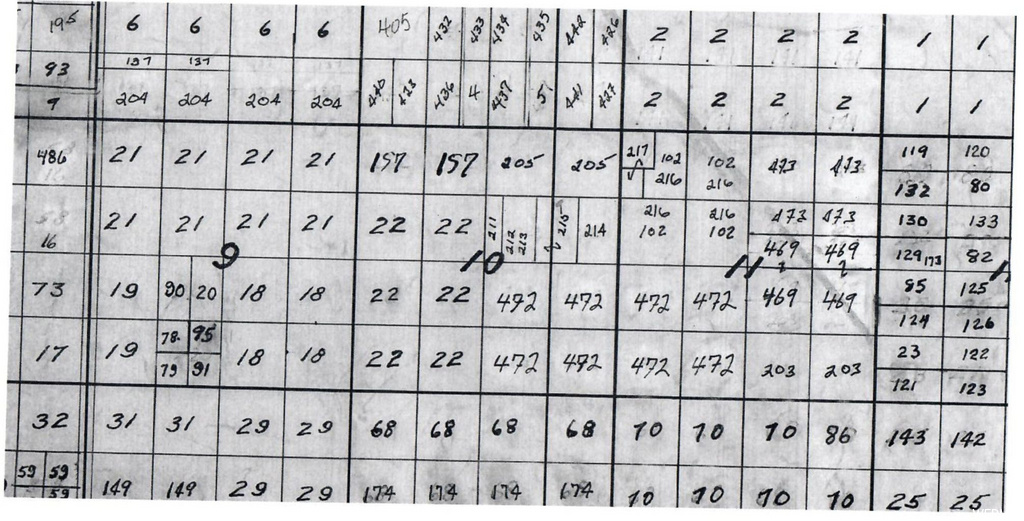 195 6 6 6 6 405 432 433 434 435 442 426 2 2 2 2 1 1
93 137 137
9 204 204 204 204 440 423 436 4 437 51 441 427 2 2 2 2 1 1
486 21 21 21 21 157 157 205 205 217 102 102 473 473 119 120
216 216 132 80
21 21 21 21 22 22 211 212 213 215 214 216 216 473 473 130 133
102 102
16 9 10 11 469 469 129 173 82
2 2
73 19 90 20 18 18 22 22 472 472 472 472 469 469 85 125
124 126
17 19 78 95 18 18 22 22 472 472 472 472 203 203 23 122
79 91 121 123
32 31 31 29 29 68 68 68 68 70 70 70 86 143 142
59 59
59 149 149 29 29 174 174 174 174 70 70 70 70 25 25